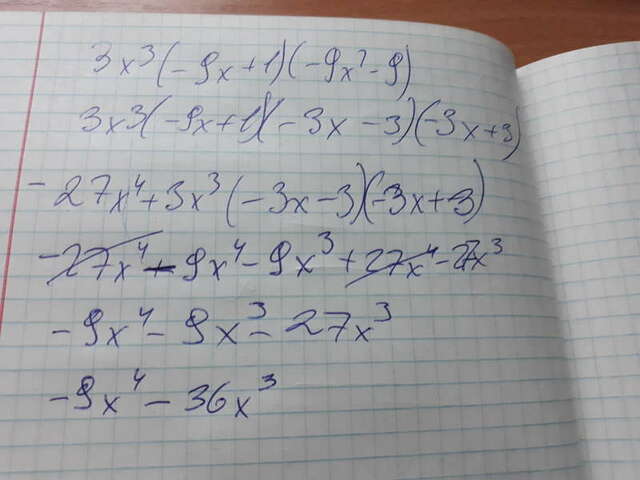 3x³(-9x+1)(-9x²-9)
3x³(-9x+1)(-3x-3)(-3x+3)
-27x⁴+3x³(-3x-3)(-3x+3)
-27x⁴-9x⁴-9x³+27x⁴-27x³
-9x⁴-9x³-27x³
-9x⁴-36x³